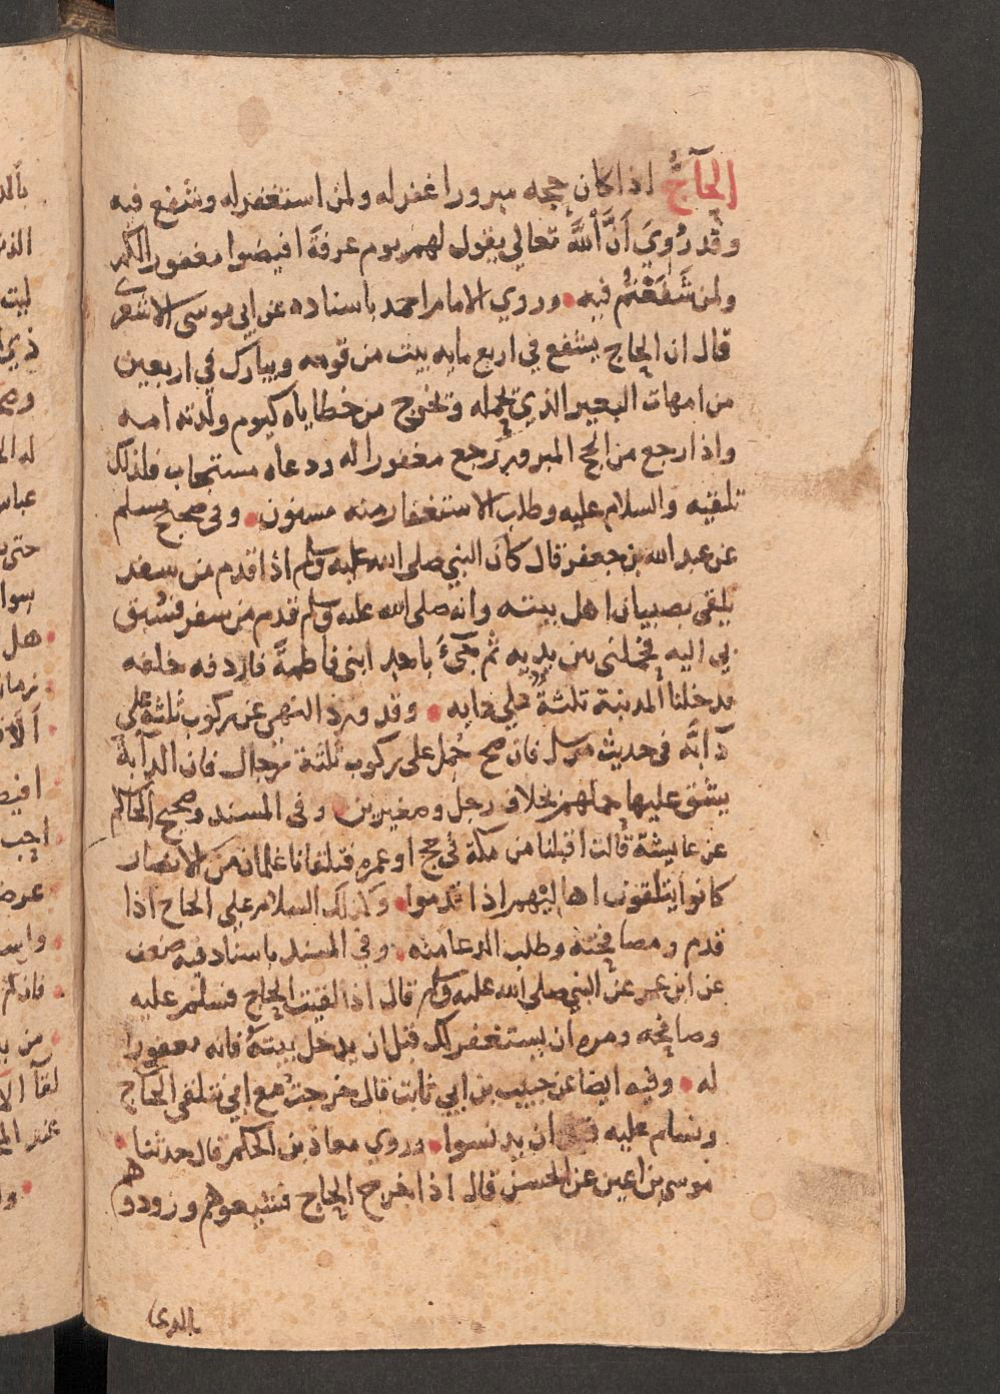 الحآجُّ اذا كان حجه مبرورا غفر له ولمن استغفر له وشفع فيه
وقد رُوِيَ أنَّ ٱللَّهَ تعالي يقول لهم يوم عرفة افيضوا مغفورا لكم
ولمن شَفَعْتُمْ فيه • وروي الامام احمد باسناده عن ابي موسى الاشعري
قال ان الحاج يشفع في اربع مايه بيت من قومه ويبارك في اربعين
من امهات البعير الذي يحمله ويخرج من خطاياه كيوم ولدته امه
واذا رجع من الحج المبرور رجع مغفورا له ودعاه مستجاب فلذلك
تلقيه والسلام عليه وطلب الاستغفار منه مسنون • وفي صحيح مسلم
عن عبد الله بن جعفر قال كان النبي صلى الله عليه وسلم اذا قدم من سفر
يلقى بصبيان اهل بيته وانه صلى الله عليه وسلم قدم من سفر فسُبق
بي اليه فحملني بين يديه ثم جيءَ باحد ابني فاطمةَ فاردفه خلفه
فدخلنا المدينة ثلثة على دابه • وقد ورد النهي عن ركوب ثلثة على
دآبَّه في حديث مرسل فان صح حُمِل على ركوب ثلثة رجال فان الدآبة
يشق عليها حملهم بخلاف رجل وصغيرين وفي المسند وصحيح الحاكم
عن عايشة قالت اقبلنا من مكة في حج او عمره فتلقانا غلمان من الانصار
كانوا يتلقون اهاليْهم اذا قدموا • وكذلك السلام علي الحاج اذا
قدم ومصافحته وطلب الدعا منه • وفي المسند باسناد فيه ضعف
عن ابن عمر عن النبي صلى الله عليه وسلم قال اذا لقيت الحاج فسلم عليه
وصافحه ومره ان يستغفر لك قبل ان يدخل بيته فانه مغفورا
له • وفيه ايضا عن حبيب بن ابي ثابت قال خرجت مع ابي نتلقى الحاج
ونسلم عليه قبل ان يدنسوا • وروي معاذ بن الحكم قال حدثنا •
موسى بن اعين عن الحسن قال اذا خرج الحاج فشيعوهم وزودوهم
بالدعا